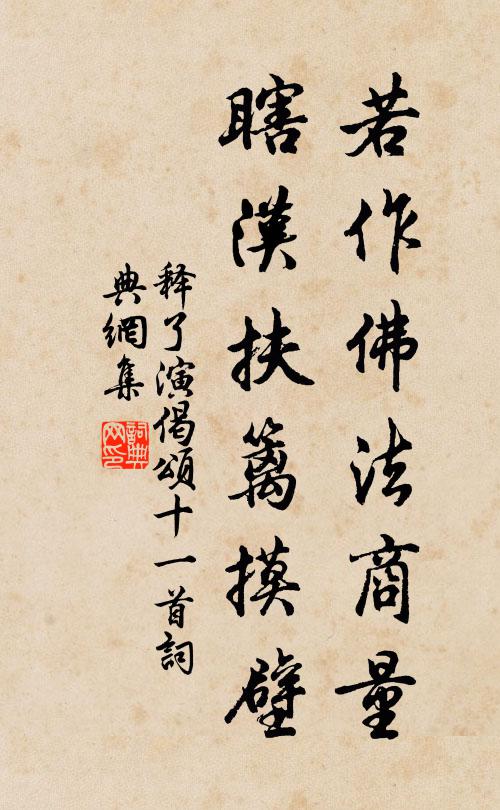 若作佛法商量
瞎漢扶籬摸壁
释了演偈頌十一首詞
典網集
詞典网印